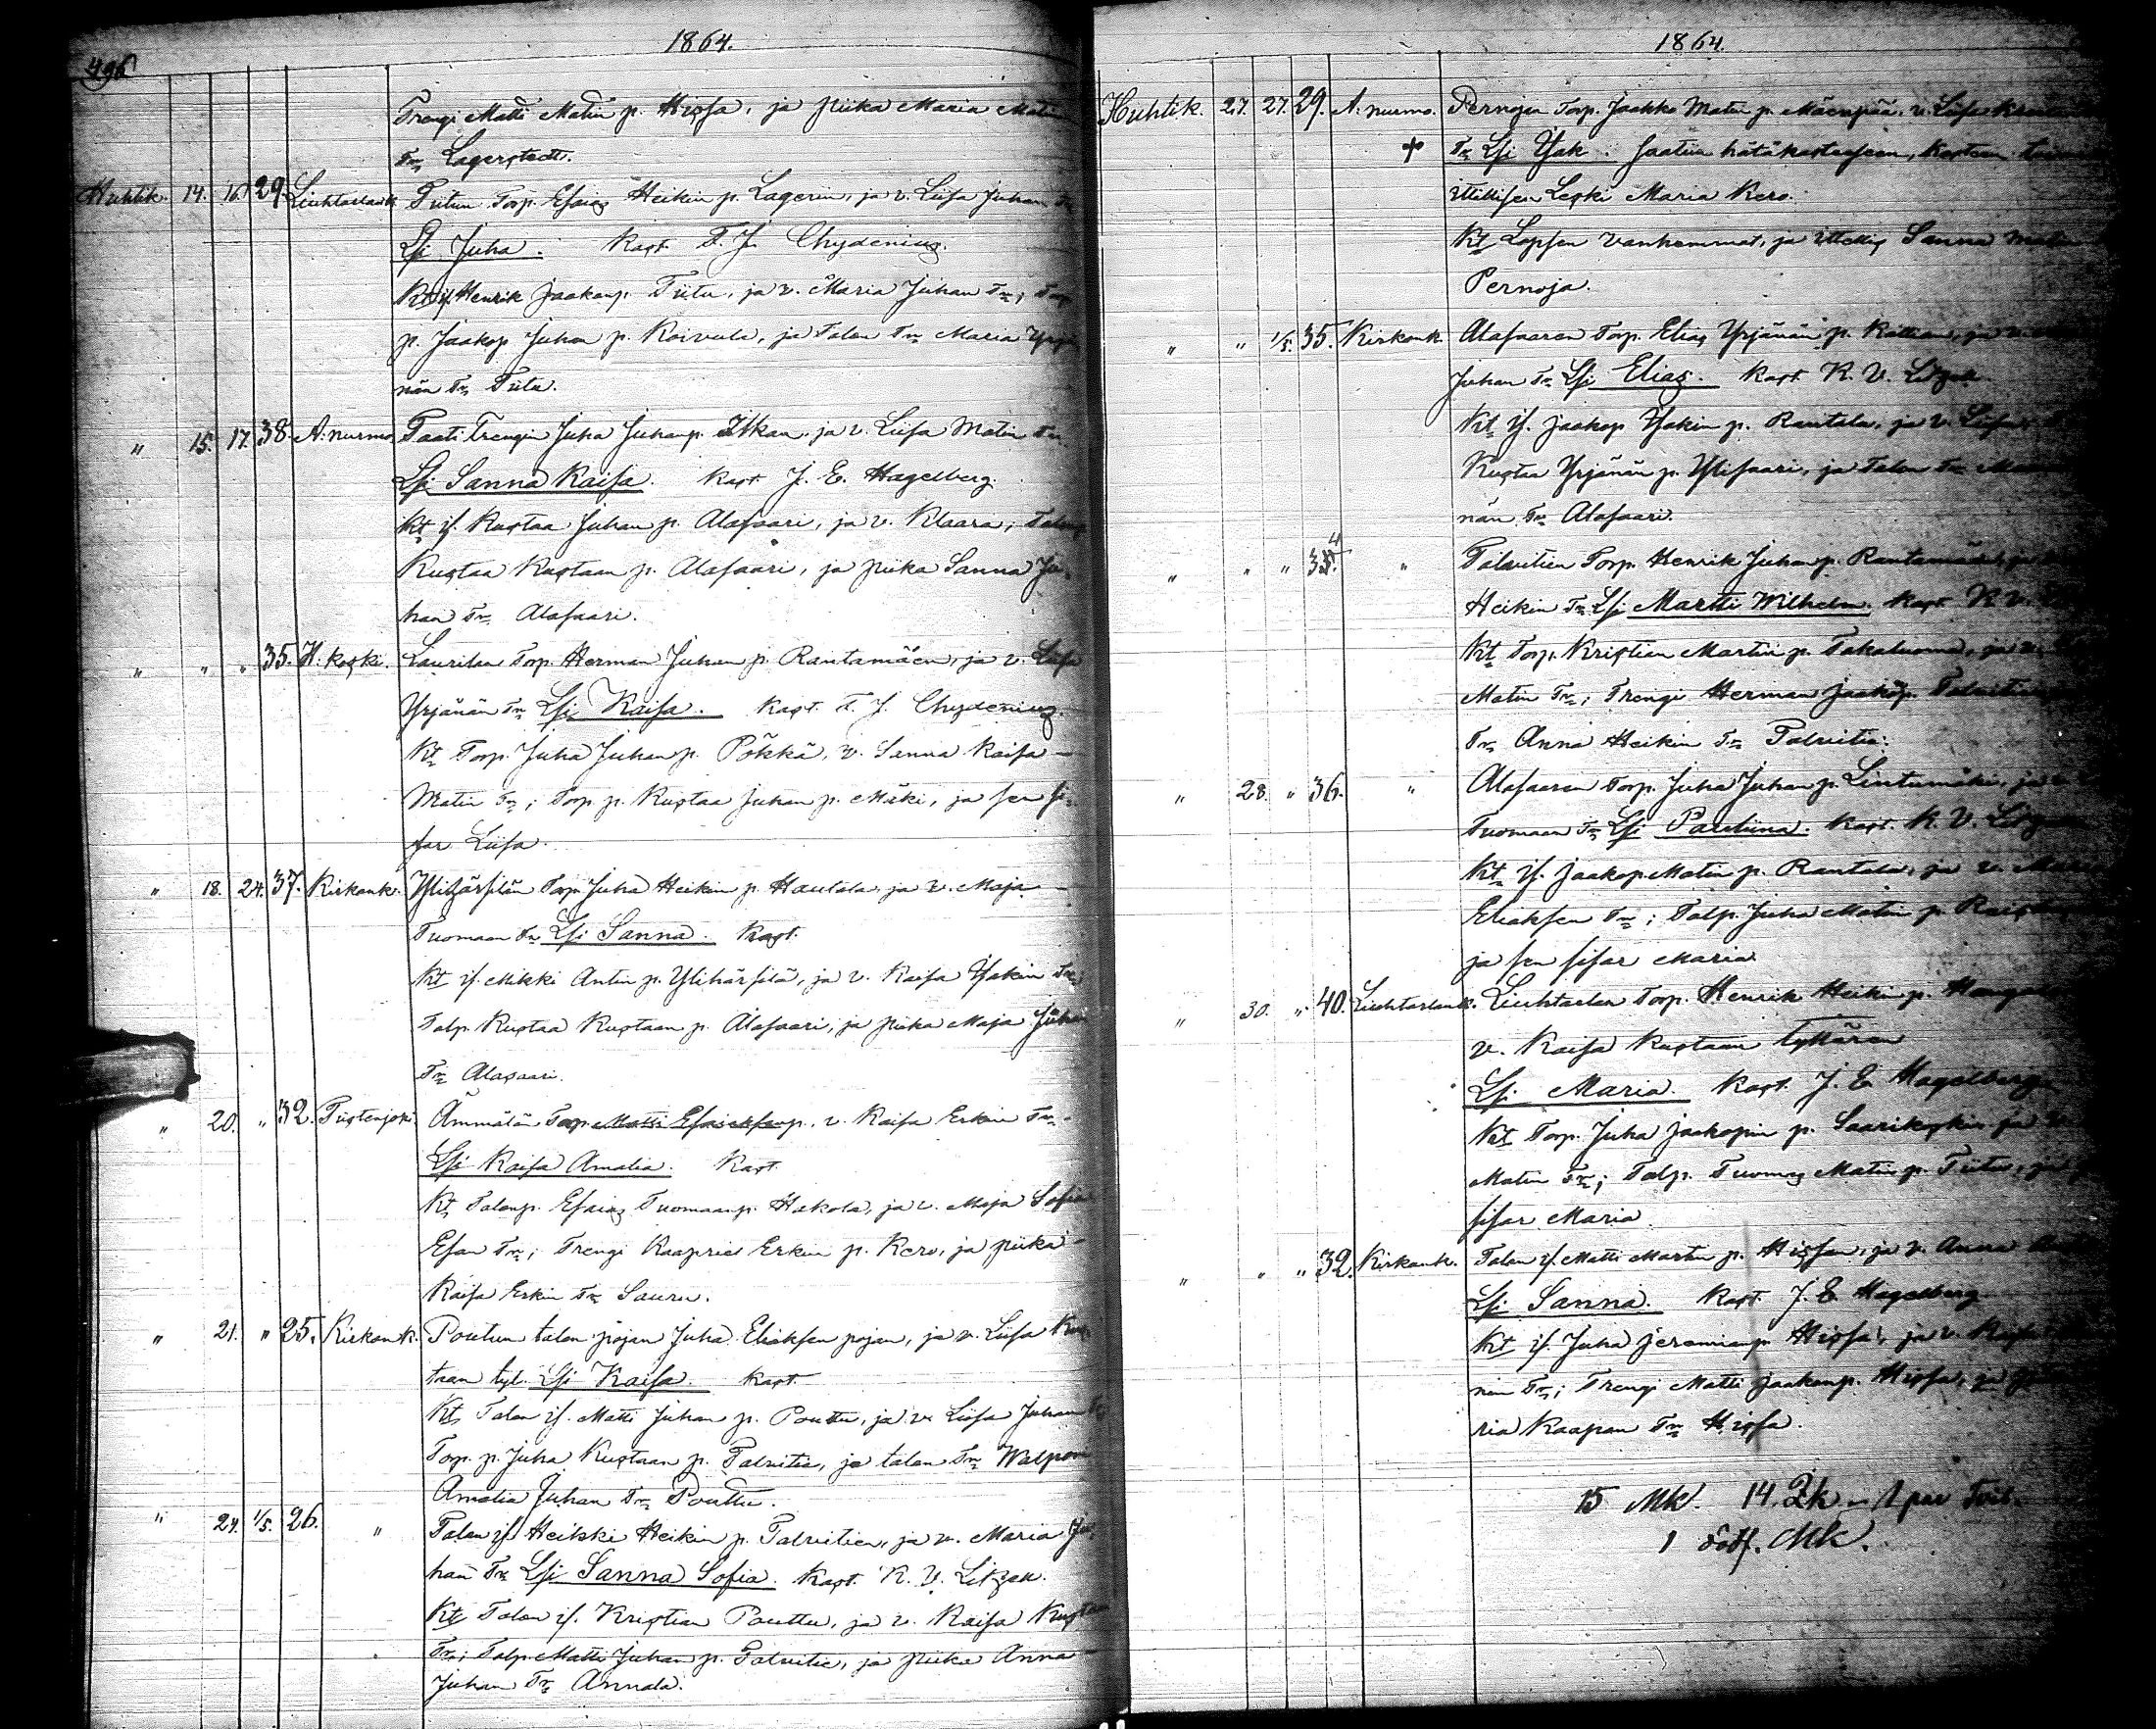 1864.
496
Trengi Matti Matin p. Hissa, ja piika Maria Matin
Tr. Lagerstedt.
Huhtik. 14. 16. 29. Liuhtarlank. Tiitun Torp. Esaias Heikin p. Lagerin, ja v. Liisa Juhan Tr.
Lsi Juha. Kast. F. J. Chydenius.
Kt if. Henrik Jaakonp. Tiitu, ja v. Maria Juhan Tr; Torp.
p. Jaakop Juhan p. Koivula, ja Talon Tr. Maria Yrjä-
nän Tr. Tiitu.
" 15. 17. 38. A. nurmo. Paati Trengin Juha Juhanp. Itkan, ja v. Liisa Matin Tr.
Lsi Sanna Kaisa. Kast. J. E. Hagelberg.
Kt if. Kustaa Juhan p. Alasaari, ja v. Klaara; Talonp.
Kustaa Kustaan p. Alasaari, ja piika Sanna Ju-
han Tr. Alasaari.
" " " 35. H. koski. Laurilan Torp. Herman Juhan p. Rantamäen, ja v. Liisa
Yrjänän Tr. Lsi Kaisa. Kast. F. J. Chydenius.
Kt Torp. Juha Juhan p. Pökkä, v. Sanna Kaisa
Matin Tr; Torp. p. Kustaa Juhan p. Mäki, ja sen si-
sar Liisa.
" 18. 24. 37. Kirkonk. Ylihärsilän Torp. Juha Heikin p. Hautala, ja v. Maja
Tuomaan Tr. Lsi Sanna. Kast.
Kt if. Mikki Antin p. Ylihärsilä, ja v. Kaisa Isakin Tr;
Talp. Kustaa Kustaan p. Alasaari, ja piika Maja Juhan
Tr. Alasaari.
" 20. " 32. Tiistenjoki. Ämmälän Torp. Matti Esaiaksenp. v. Kaisa Erkin Tr.
Lsi Kaisa Amalia. Kast.
Kt. Talonp. Esaias Tuomaanp. Hakola, ja v. Maja Sofia
Esan Tr; Trengi Kaapriel Erkin p. Kero, ja piika
Kaisa Erkin Tr. Sauru.
" 21. " 25. Kirkonk. Poutun talon pojan Juha Eliaksen pojan, ja v. Liisa Kus-
taan tyt. Lsi Kaisa. Kast.
Kt. Talon if. Matti Juhan p. Pouttu, ja v. Liisa Juhan Tr;
Torp. p. Juha Kustaan p. Talvitie, ja talon Tr. Walpori
Amalia Juhan Tr. Pouttu.
" 24. 1/5. 26. " Talon if. Heikki Heikin p. Talvitien, ja v. Maria Ju-
han Tr. Lsi Sanna Sofia. Kast. K. V. Litzen.
Kt Talon if. Kristian Pouttu, ja v. Kaisa Kustaan
Tr; Talp. Matti Juhan p. Talvitie, ja piika Anna
Juhan Tr. Annala.
1864.
Huhtik. 27. 27. 29. A. nurmo. Pernojan Torp. Jaakko Matin p. Mäenpää, v. Liisa
+ Tr. Lsi Isak. Saatu hätäkasteeseen, Kasteen
ittellisen Leski Maria Kero.
Kt Lapsen vanhemmat, ja ittellis Sanna Matin
Pernoja.
" " 1/5. 35. Kirkonk. Alasaaren Torp. Elias Yrjänän p. Kattian, ja v.
Juhan Tr. Lsi Elias. Kast. K. V. Litzen
Kt if. Jaakop Isakin p. Rantala, ja v. Liisa
Kustaa Yrjänän p. Ylisaari, ja Talon Tr.
nän Tr. Alasaari.
" " " 34. " Talvitien Torp. Henrik Juhan p. Rantamäen,
Heikin Tr. Lsi Martti Wilhelm. Kast. K. V.
Kt Torp. Kristian Martin p. Takaluoma, ja v.
Matin Tr; Trengi Herman Jaakop. Talvitie
Tr. Anna Heikin Tr. Talvitie.
" 28. " 36. " Alasaaren Torp. Juha Juhan p. Lintumäki, ja v.
Tuomaan Tr. Lsi Pauliina. Kast. K. V. Litzen
Kt if. Jaakop Matin p. Rantala, ja v.
Eliaksen Tr; Talp. Juha Matin p.
ja sen sisar Maria
" 30. " 40. Liuhtarlank. Liuhtarlan Torp. Henrik Heikin p.
v. Kaisa Kustaan tyttären
Lsi Maria. Kast. J. E. Hagelberg
Kt Torp. Juha Jaakopin p. Saarikoski, ja v.
Matin Tr; Talp. Tuomas Matin p. Tiitu, ja
sisar Maria
" " " 32. Kirkonk. Talon if. Matti Martin p. Hissan, ja v. Anna
Lsi Sanna. Kast. J. E. Hagelberg
Kt if. Juha Jeremianp. Hissa, ja v. Kaisa
nin Tr; Trengi Matti Jaakonp. Hissa, ja
ria Kaapan Tr. Hissa.
15 Mk. 14. Qk. 1 par Tvil.
1 dödf. Mk.